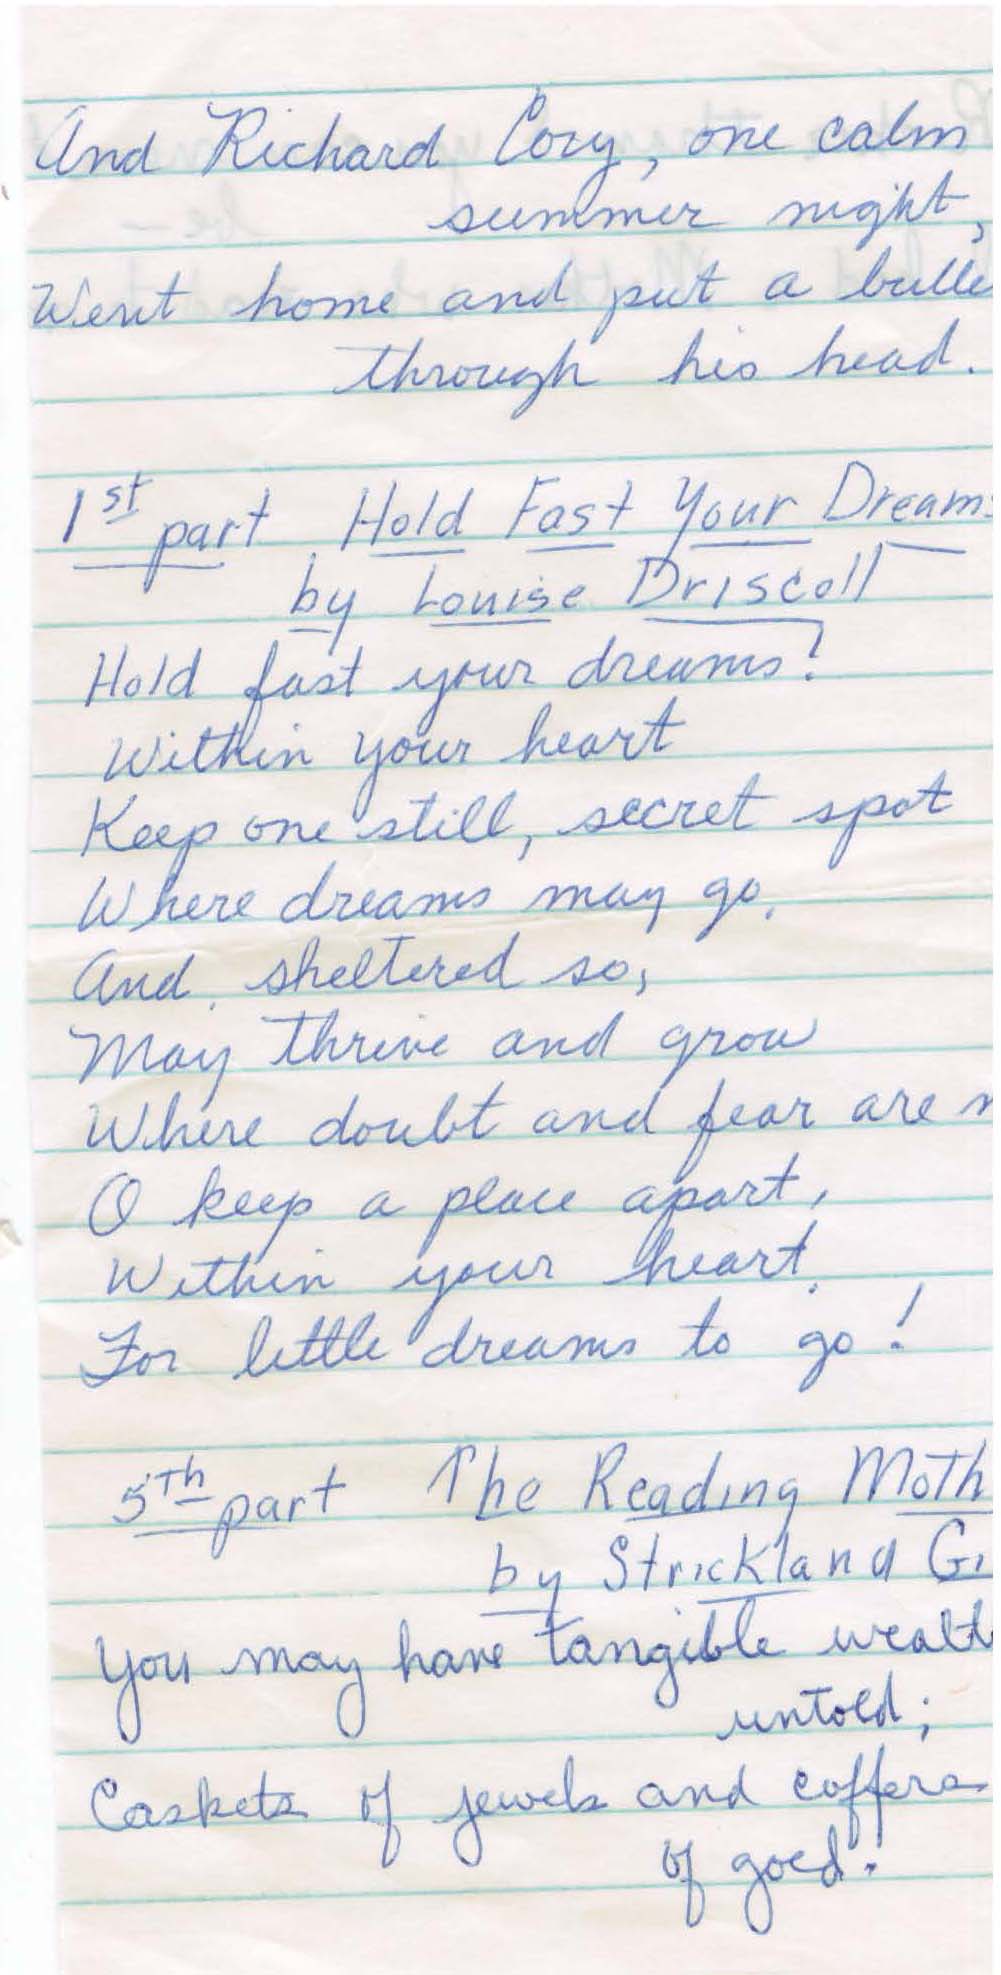 And Richard Cory, one calm
summer night,
Went home and put a bulle
through his head.
1st part Hold Fast Your Dreams
by Louise Driscoll
Hold fast your dreams!
Within your heart
Keep one still, secret spot
Where dreams may go,
And, sheltered so,
May thrive and grow
Where doubt and fear are n
O keep a place apart,
Within your heart,
For little dreams to go!
5th part The Reading Moth
by Strickland Gi
You may have tangible wealth
untold;
Caskets of jewels and coffers
of gold.